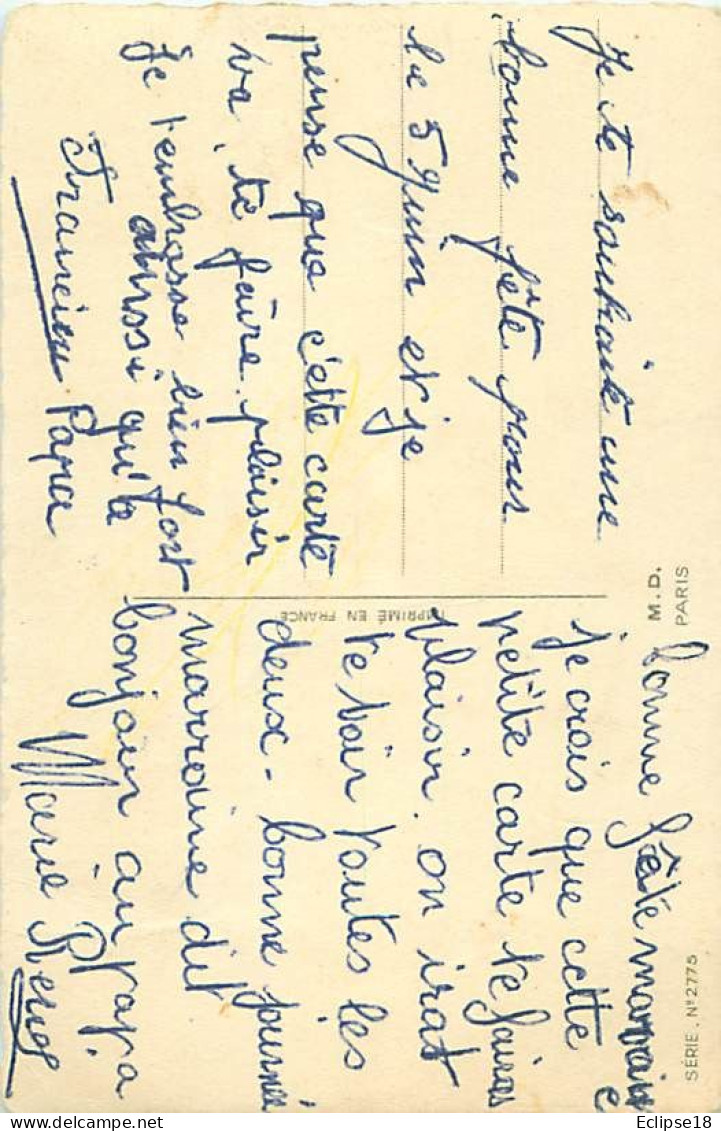 Je te souhaite une
bonne fête pour
le 5 Juin et je
pense que c'ette carte
va, te faire plaisir
Je tembrasse bien fort
aussi qu'a
Papa
M.D.
PARIS
IMPRIMÉ EN FRANCE
bonne fête marraine
je crois que cette
petite carte te faires
plaisir. on irat
te voir toutes les
deux - bonne journée
marraine dit
bonjour au papa
Marie
SÉRIE. N° 2775
Eclipse18